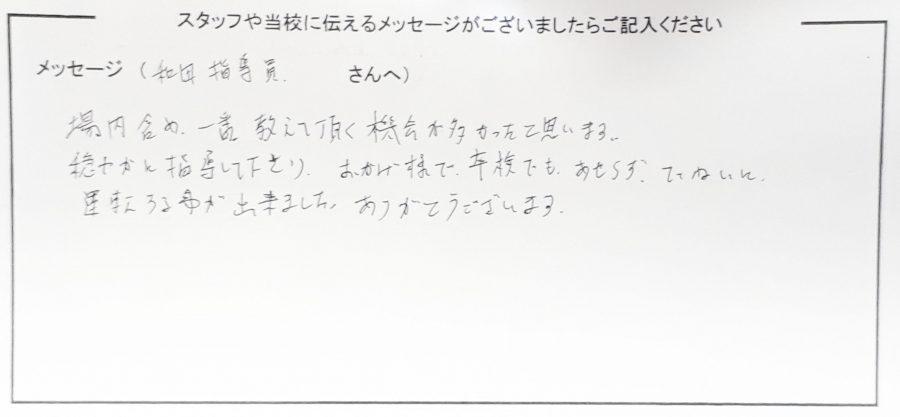 スタッフや当校に伝えるメッセージがございましたらご記入ください
メッセージ（和田 指導員 さんへ）
場内含め、一番教えて頂く機会が多かったと思います。
穏やかに指導して下さり、おかげ様で、卒検でも、あせらず、ていねいに、
運転する事が出来ました。ありがとうございます。